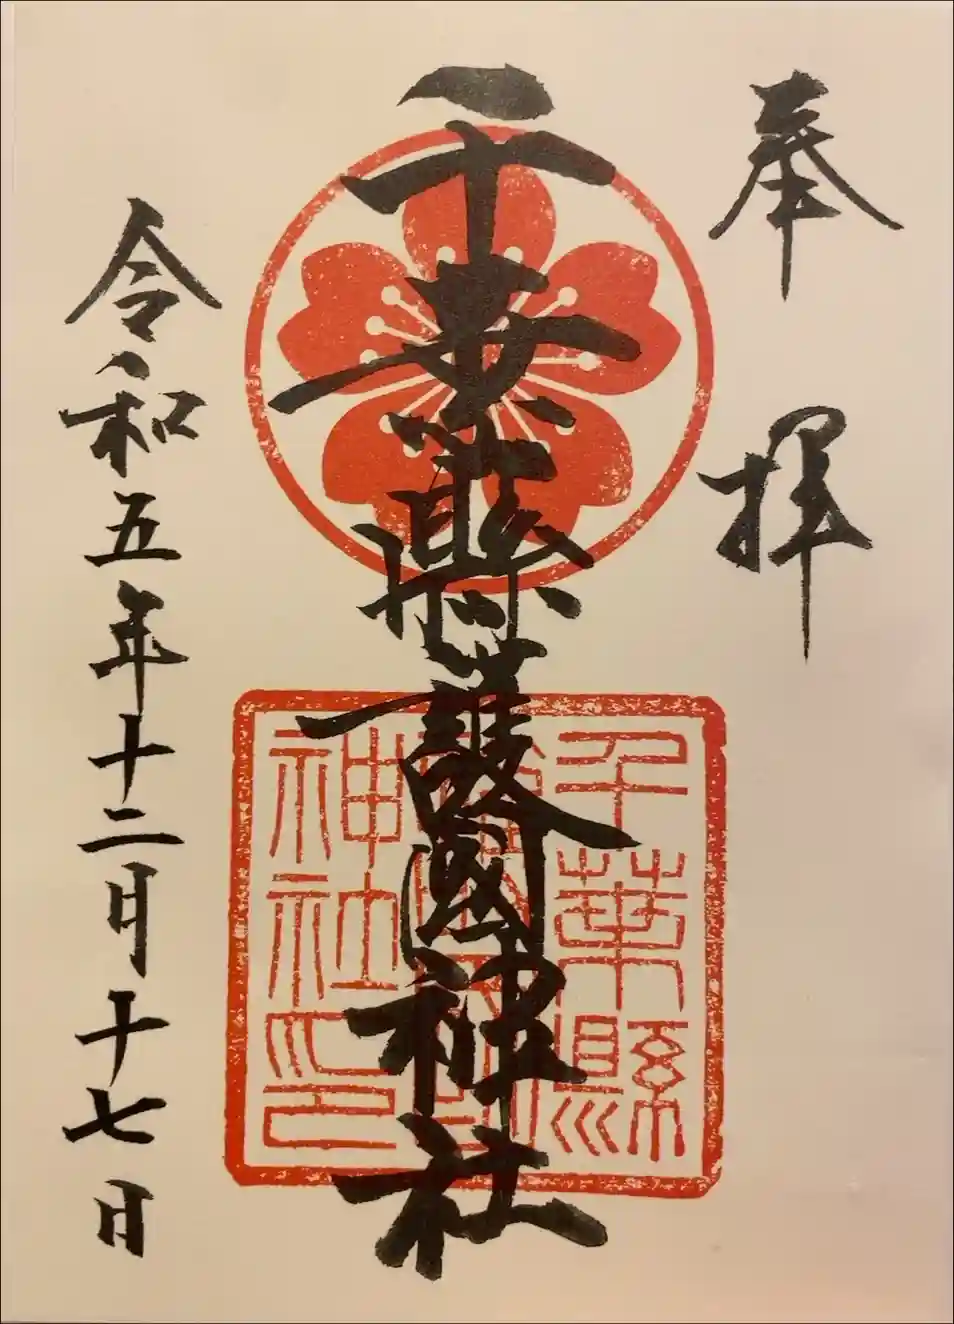 奉拝
千葉縣護國神社
千葉縣
神社印
令和五年十二月十七日